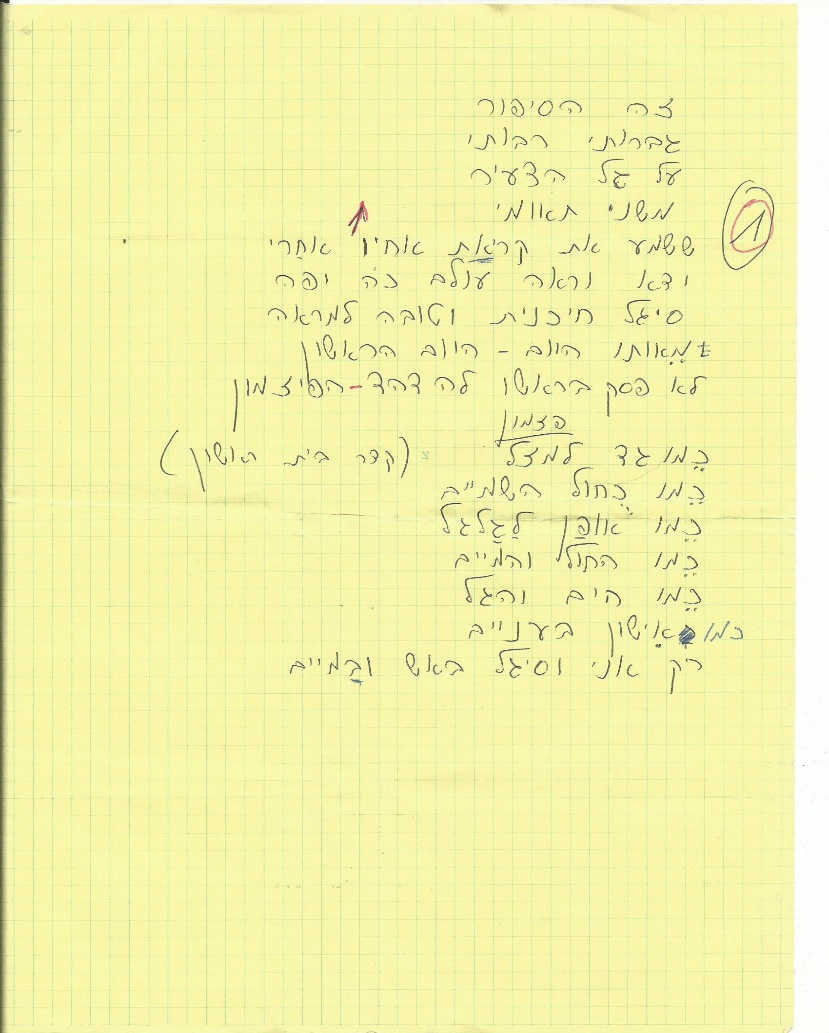 1
זה הסיפור
גברותי רבותי
על גל הצעיר
משני תאומי
ששמע את קריאת אוחיו אוחרי
ידא וראה עולם כה יפה
סיגל חיכנית וטובה למראה
מאותו היום - היום הראשון
לא פסק בראשו להדהד - הפיצמון
פצמון
כמו גד למצל (קדר בית ראשון)
כמו כחול השמיים
כמו אופן לגלגל
כמו החול והמיים
כמו הים והגל
כמו אישון בעניים
רק אני וסיגל באש ובמיים